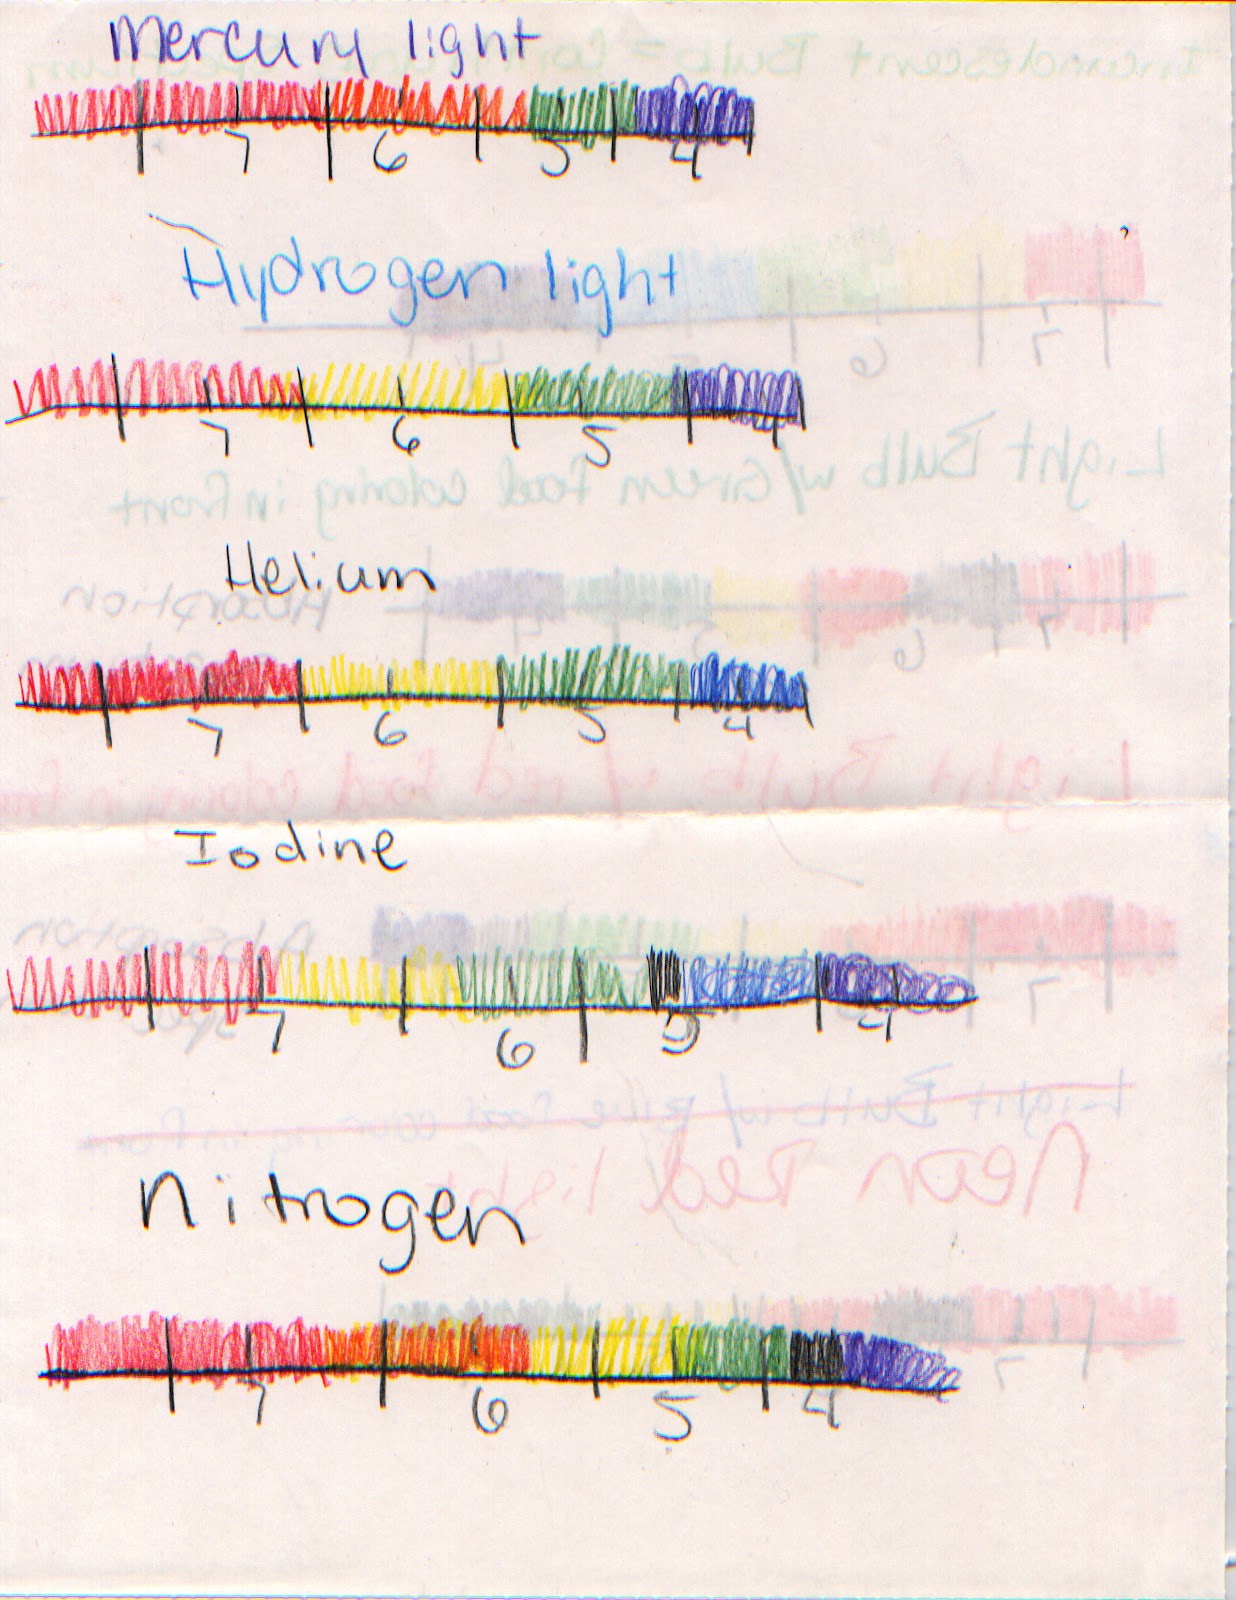 Mercury light
7 6 5 4
Hydrogen light
7 6 5 4
Helium
7 6 5 4
Iodine
7 6 5 4
Nitrogen
7 6 5 4